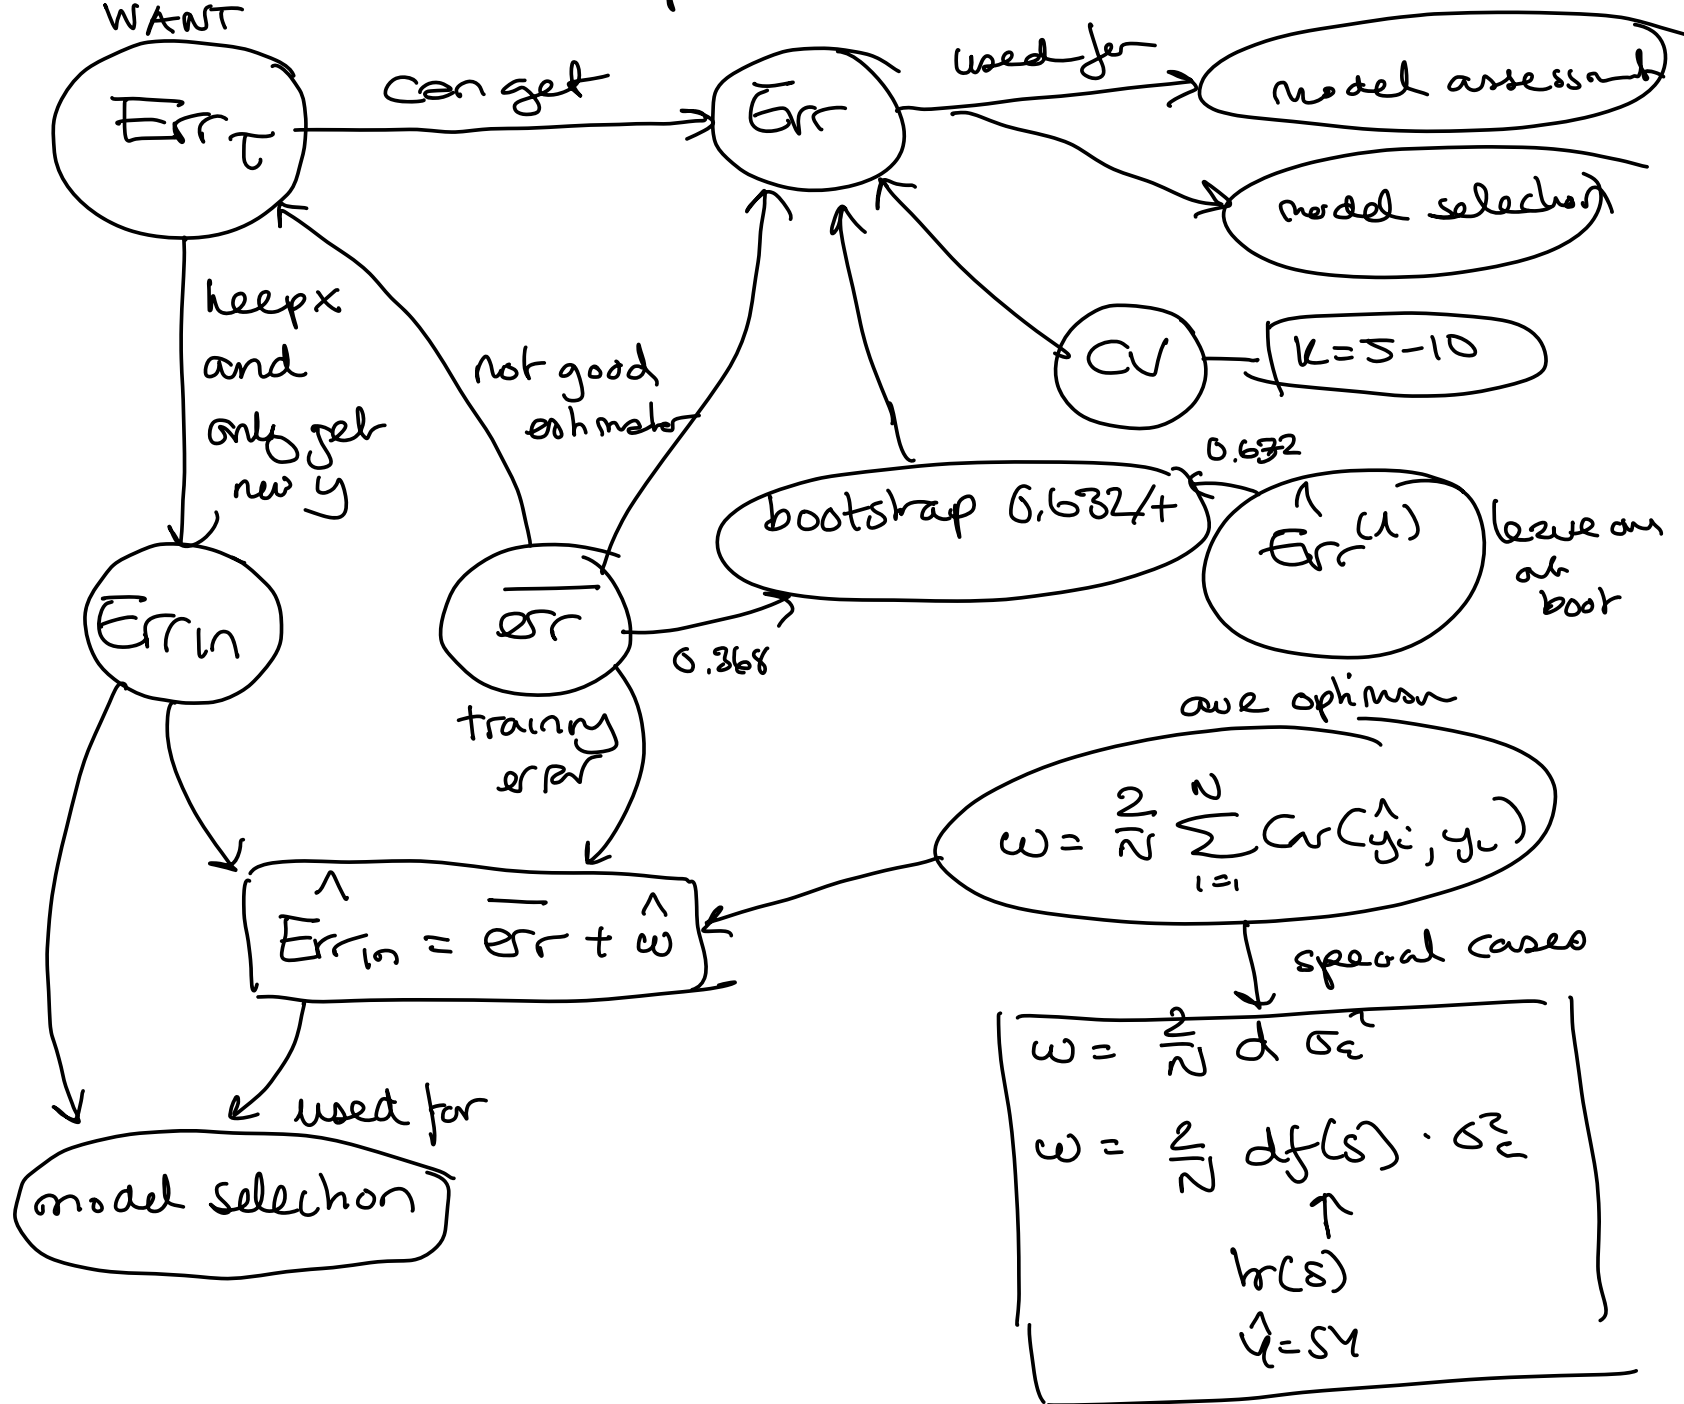 WANT
Err_τ
can get
Err
used for
model assessment
model selection
keep x
and
only get
new y
not good
estimator
CV
k=5-10
0.632
bootstrap 0.632/+
Êrr^(1)
leave one
out
boot
Err_in
err̅
0.368
training
error
ave optimism
ω = 2/N Σ_{i=1}^{N} Cov(ŷ_i, y_i)
Êrr_in = err̅ + ω̂
special cases
ω = 2/N d σ_ε²
ω = 2/N df(S) · σ_ε²
↑
tr(S)
ŷ=SY
used for
model selection